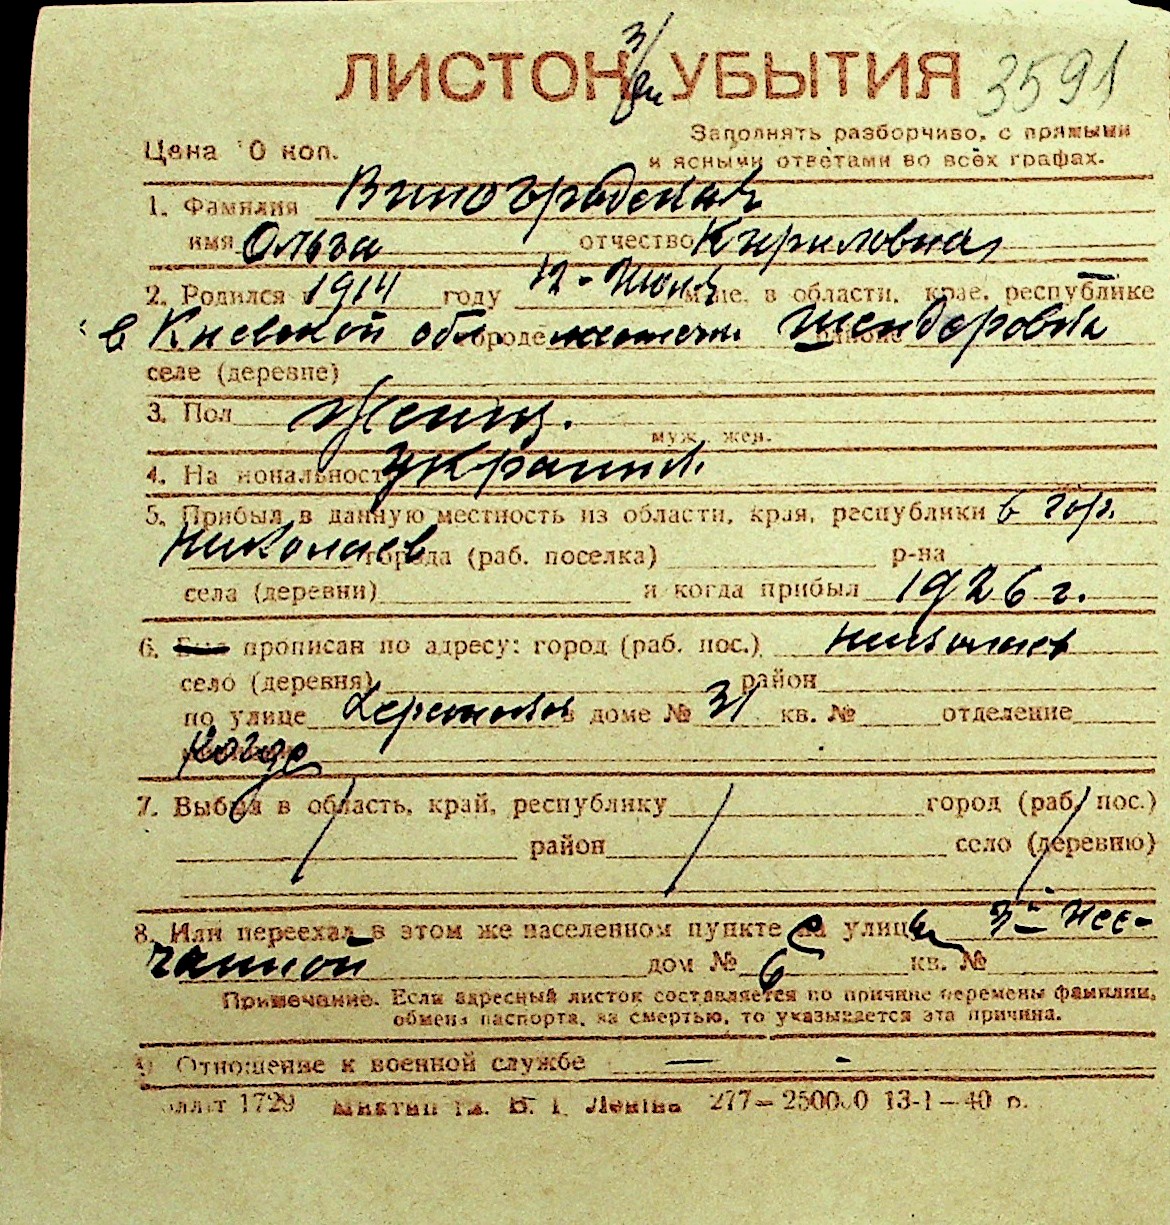 ЛИСТОК УБЫТИЯ 3591
Цена 10 коп.
Заполнять разборчиво, с прямыми
и ясными ответами во всех графах.
1. Фамилия Виноградская
имя Ольга отчество Кириловна
2. Родился в 1914 году 12 - Июля м-це, в области, крае, республике
в Киевской обл. городе местечки районе Шендеровка
селе (деревне)
3. Пол Женщ.
муж., жен.
4. Национальность Украинк.
5. Прибыл в данную местность из области, края, республики в гор.
Николаев города (раб. поселка) р-на
села (деревни) и когда прибыл 1926 г.
6. Был прописан по адресу: город (раб. пос.) Николаев
село (деревня) район
по улице в доме № 31 кв. № отделение
7. Выбыл в область, край, республику город (раб. пос.)
район село (деревню)
8. Или переехал в этом же населенном пункте с улицы 3й Пес-
чанной дом № 6 кв. №
Примечание. Если адресный листок составляется по причине перемены фамилии,
обмена паспорта, за смертью, то указывается эта причина.
9. Отношение к военной службе — -
1729 277—250000 13-1—40 г.